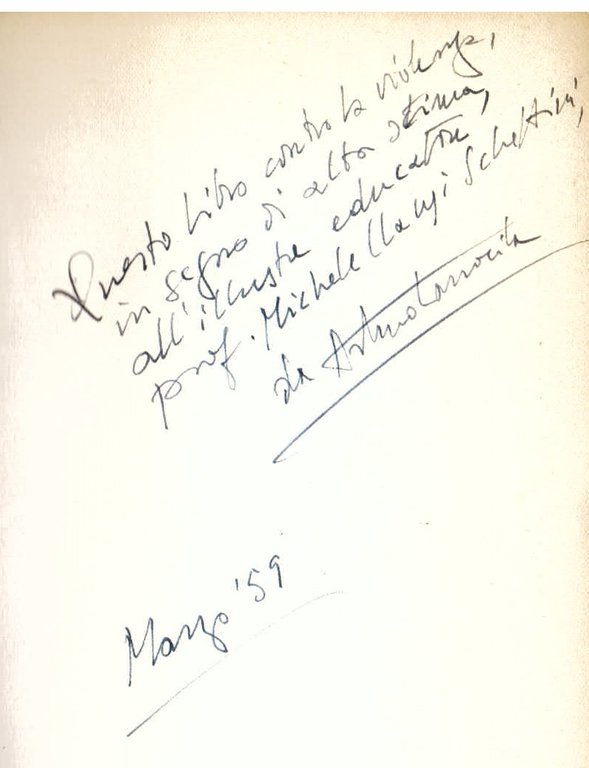 Questo libro contro la violenza,
in segno di alta stima,
all'illustre educatore,
prof. Michele Schettini,
da Arturo Lanocita
Marzo '59